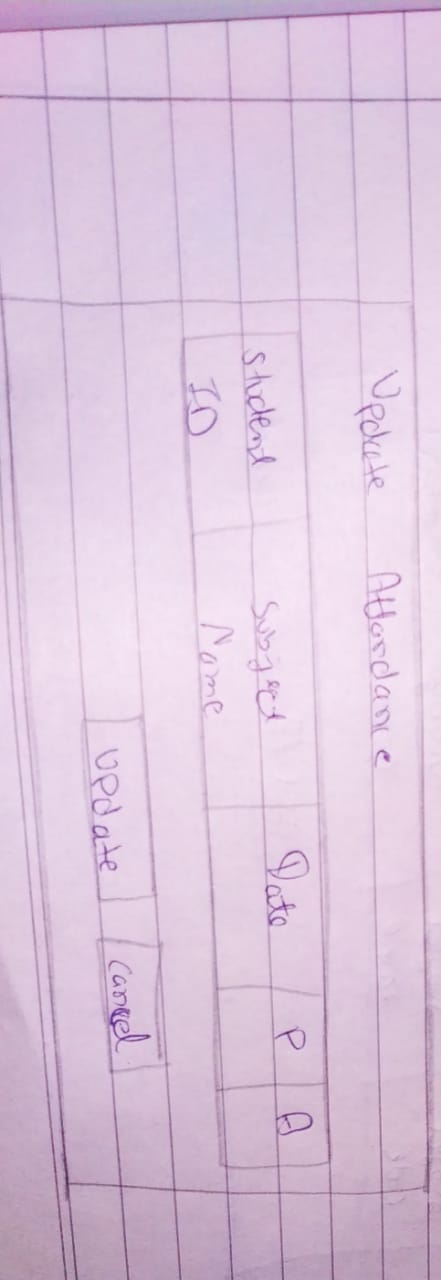 Update Attendance
Student Subject Date P A
ID Name
Update Cancel